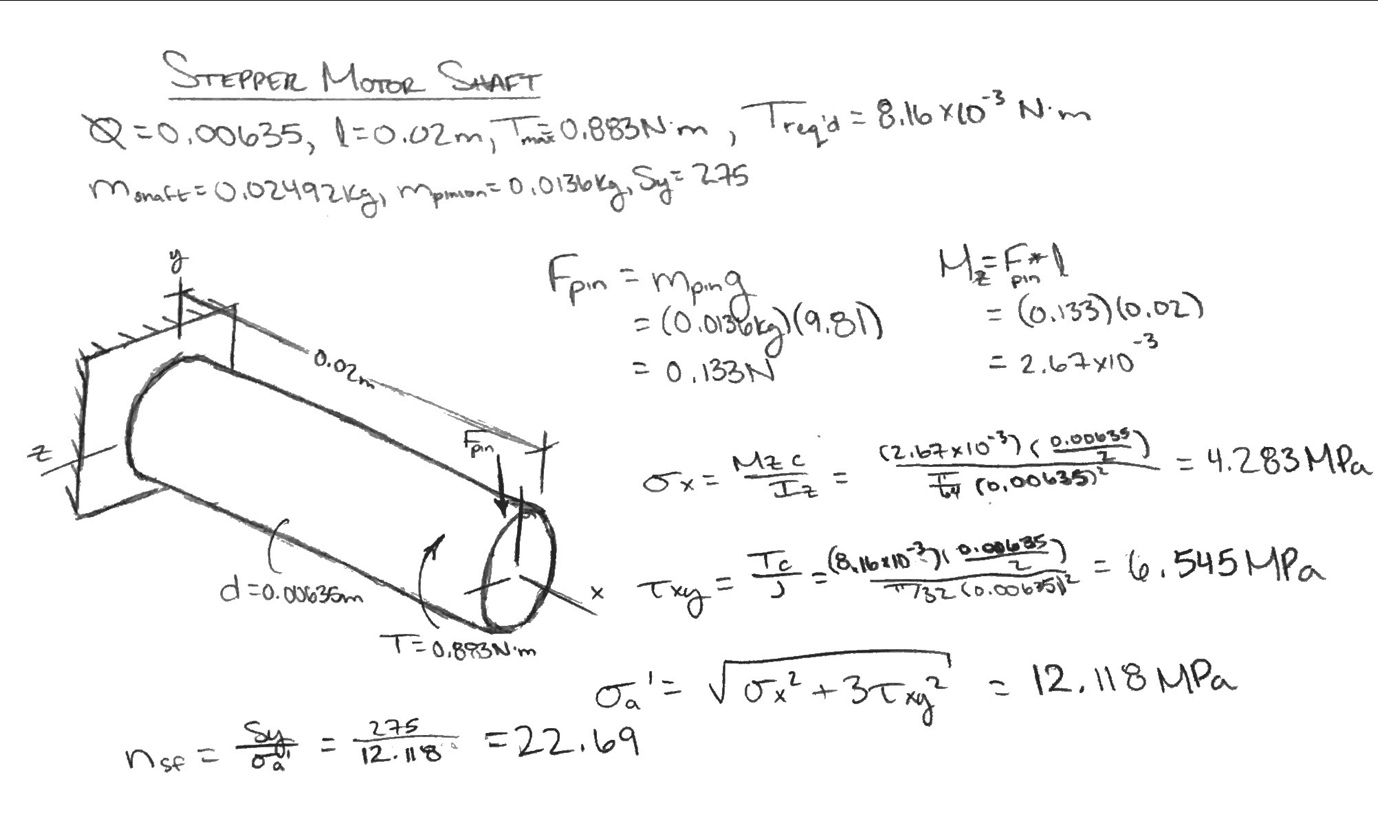 STEPPER MOTOR SHAFT
Ø = 0.00635, l = 0.02m, Tmax = 0.883N·m, Treq'd = 8.16×10⁻³ N·m
mshaft = 0.02492kg, mpinion = 0.0136kg, Sy = 275
Fpin = mpin g
= (0.0136kg)(9.81)
= 0.133N
Mz = Fpin * l
= (0.133)(0.02)
= 2.67×10⁻³
y
0.02m
z
Fpin
x
d = 0.00635m
T = 0.883N·m
σx = Mz c / Iz = (2.67×10⁻³)(0.00635/2) / π/64 (0.00635)² = 4.283 MPa
τxy = Tc / J = (8.16×10⁻³)(0.00635/2) / π/32 (0.00635)² = 6.545 MPa
σa' = √(σx² + 3τxy²) = 12.118 MPa
nsf = Sy / σa' = 275 / 12.118 = 22.69